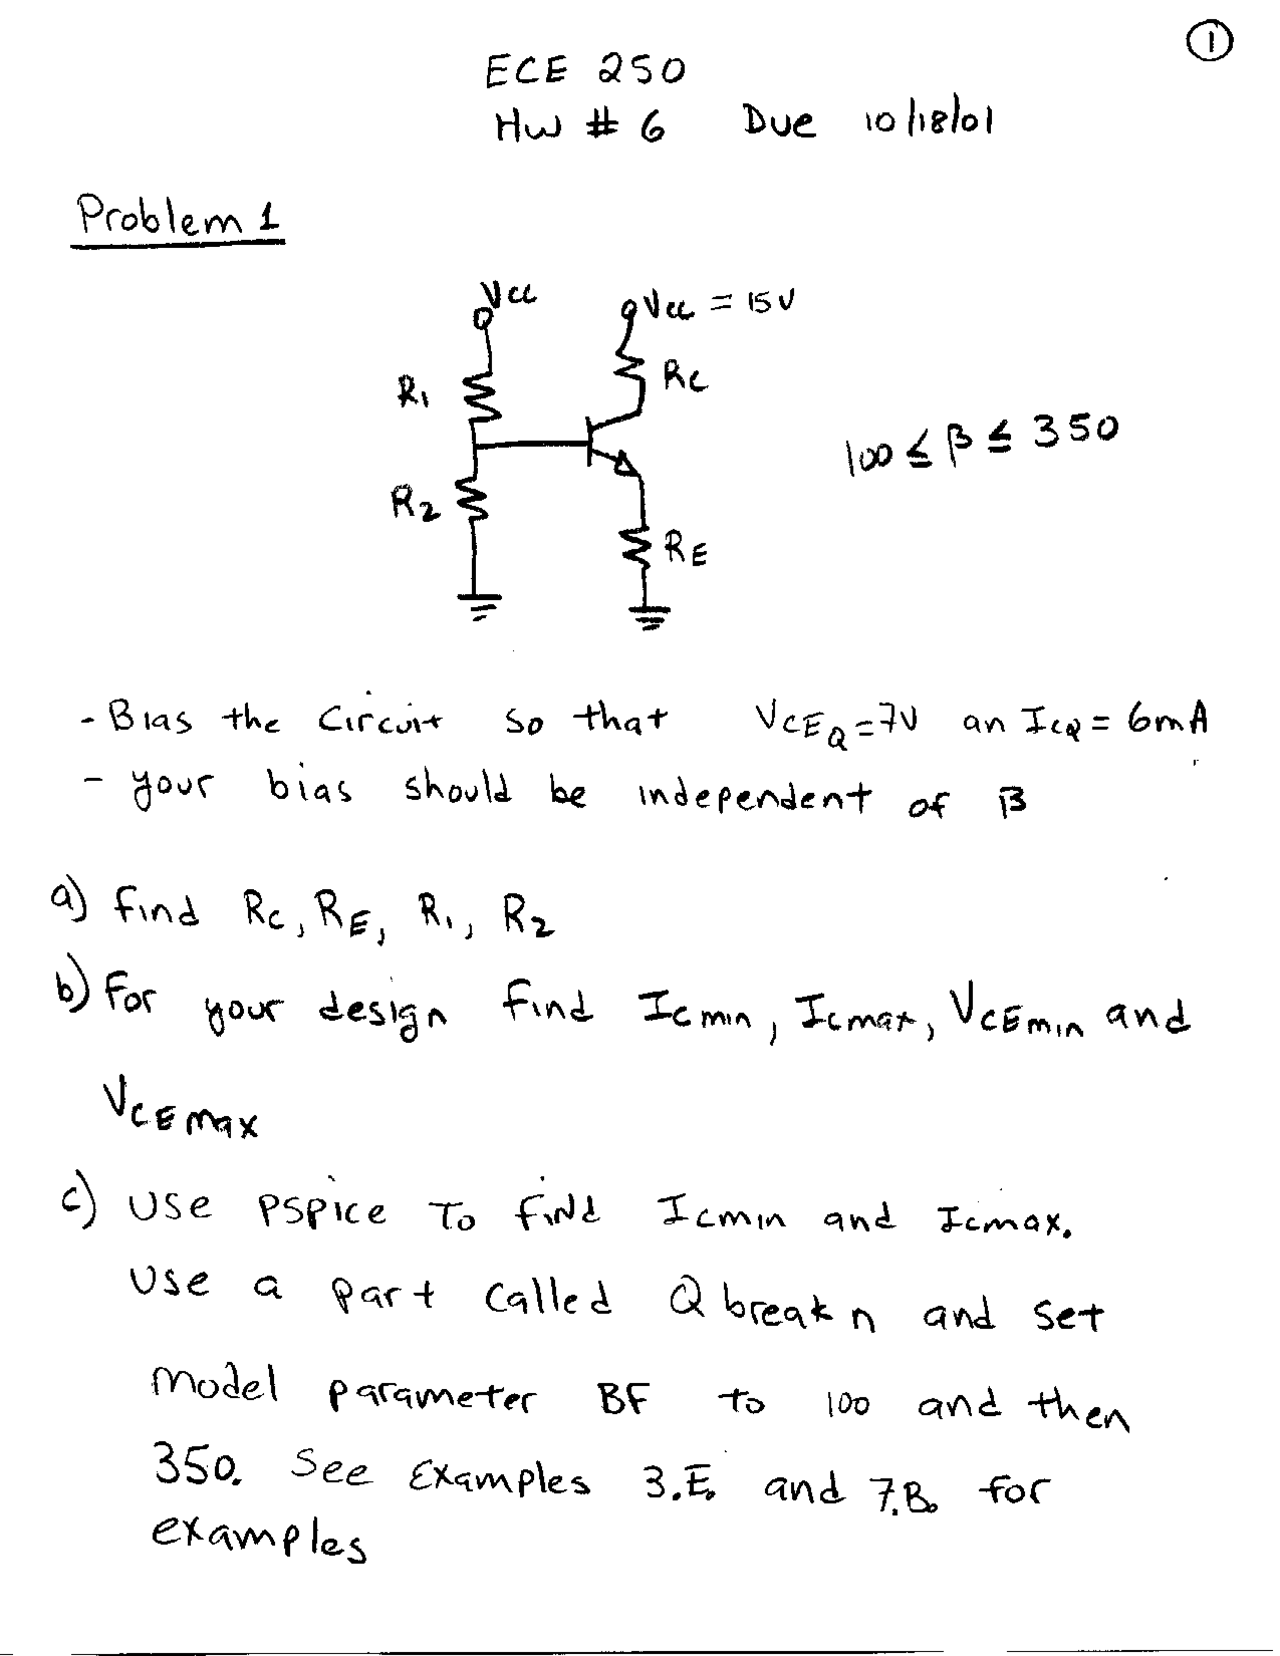 ①
ECE 250
HW # 6 Due 10/18/01
Problem 1
Vcc
Vcc = 15V
R1
RC
100 ≤ β ≤ 350
R2
RE
- Bias the circuit so that VCEQ=7V an ICQ = 6mA
- your bias should be independent of β
a) find RC, RE, R1, R2
b) For your design find Icmin, Icmax, VCEmin and
VCEmax
c) Use PSPICE To find Icmin and Icmax.
Use a part called Qbreakn and set
model parameter BF to 100 and then
350. See Examples 3.E. and 7.B. for
examples